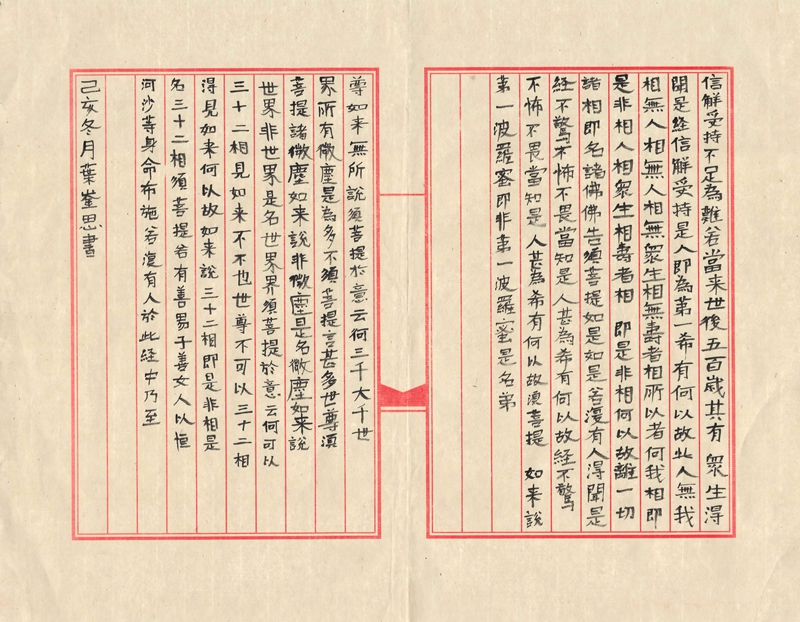 信解受持不足為難若當来世後五百歲其有衆生得
聞是經信解受持是人即為第一希有何以故此人無我
相無人相無人相無衆生相無壽者相所以者何我相即
是非相人相衆生相壽者相即是非相何以故離一切
諸相即名諸佛佛告須菩提如是如是若復有人得聞是
經不驚不怖不畏當知是人甚為希有何以故經不驚
不怖不畏當知是人甚為希有何以故須菩提 如来說
第一波羅蜜即非第一波羅蜜是名第
尊如来無所說須菩提於意云何三千大千世
界所有微塵是為多不須菩提言甚多世尊須
菩提諸微塵如来說非微塵是名微塵如来說
世界非世界是名世界界須菩提於意云何可以
三十二相見如来不不也世尊不可以三十二相
得見如来何以故如来說三十二相即是非相是
名三十二相須菩提若有善男子善女人以恒
河沙等身命布施若復有人於此經中乃至
己亥冬月葉峯思書